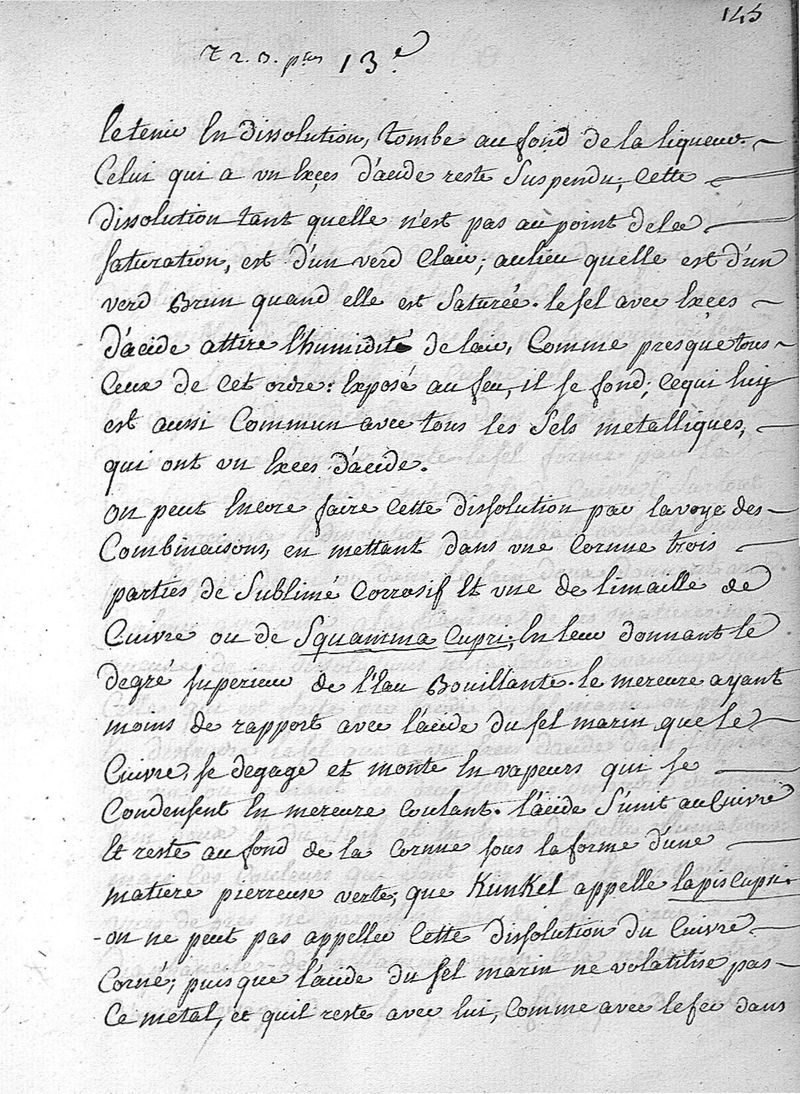 145
T 2. 3. ptes 13.e
le tenir En dissolution, tombe au fond de la liqueur.
Celui qui a vn Excès d'acide reste Suspendu; Cette
dissolution tant quelle n'est pas au point de la
saturation, est d'un verd Clair; aulieu qu'elle est d'un
verd Brun quand elle est Saturée. le sel avec Exces
d'acide attire l'humidité de lair, Comme presque tous
Ceux de Cet ordre: Exposé au feu, il se fond; Cequi luy
est aussi Commun avec tous les Sels metalliques,
qui ont vn Exces d'acide.
on peut Encore faire Cette dissolution par la voye des
Combinaisons, en mettant dans vne Cornue trois
parties de Sublimé Corrosif Et vne de limaille de
Cuivre ou de Squamma Cupri; En leur donnant le
degré superieur de l'Eau Bouillante. le mercure ayant
moins de rapport avec l'acide du sel marin que le
Cuivre, se degage et monte En vapeurs qui se
Condensent En mercure Coulant. l'acide S'unit au Cuivre
Et reste au fond de la Cornue sous la forme d'une
matiere pierreuse verte; que Kunkel appelle lapis Cupri.
- on ne peut pas appeller Cette dissolution du Cuivre
Corné; puis que l'acide du sel marin ne volatilise pas
Ce metal, et quil reste avec lui, Comme avec le fer dans